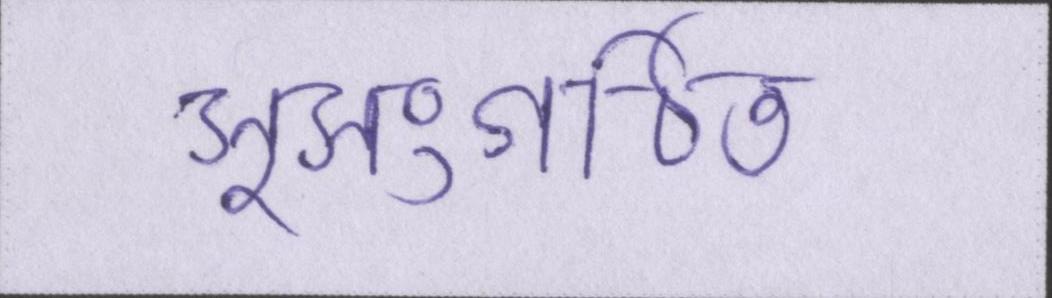 সুসংগঠিত